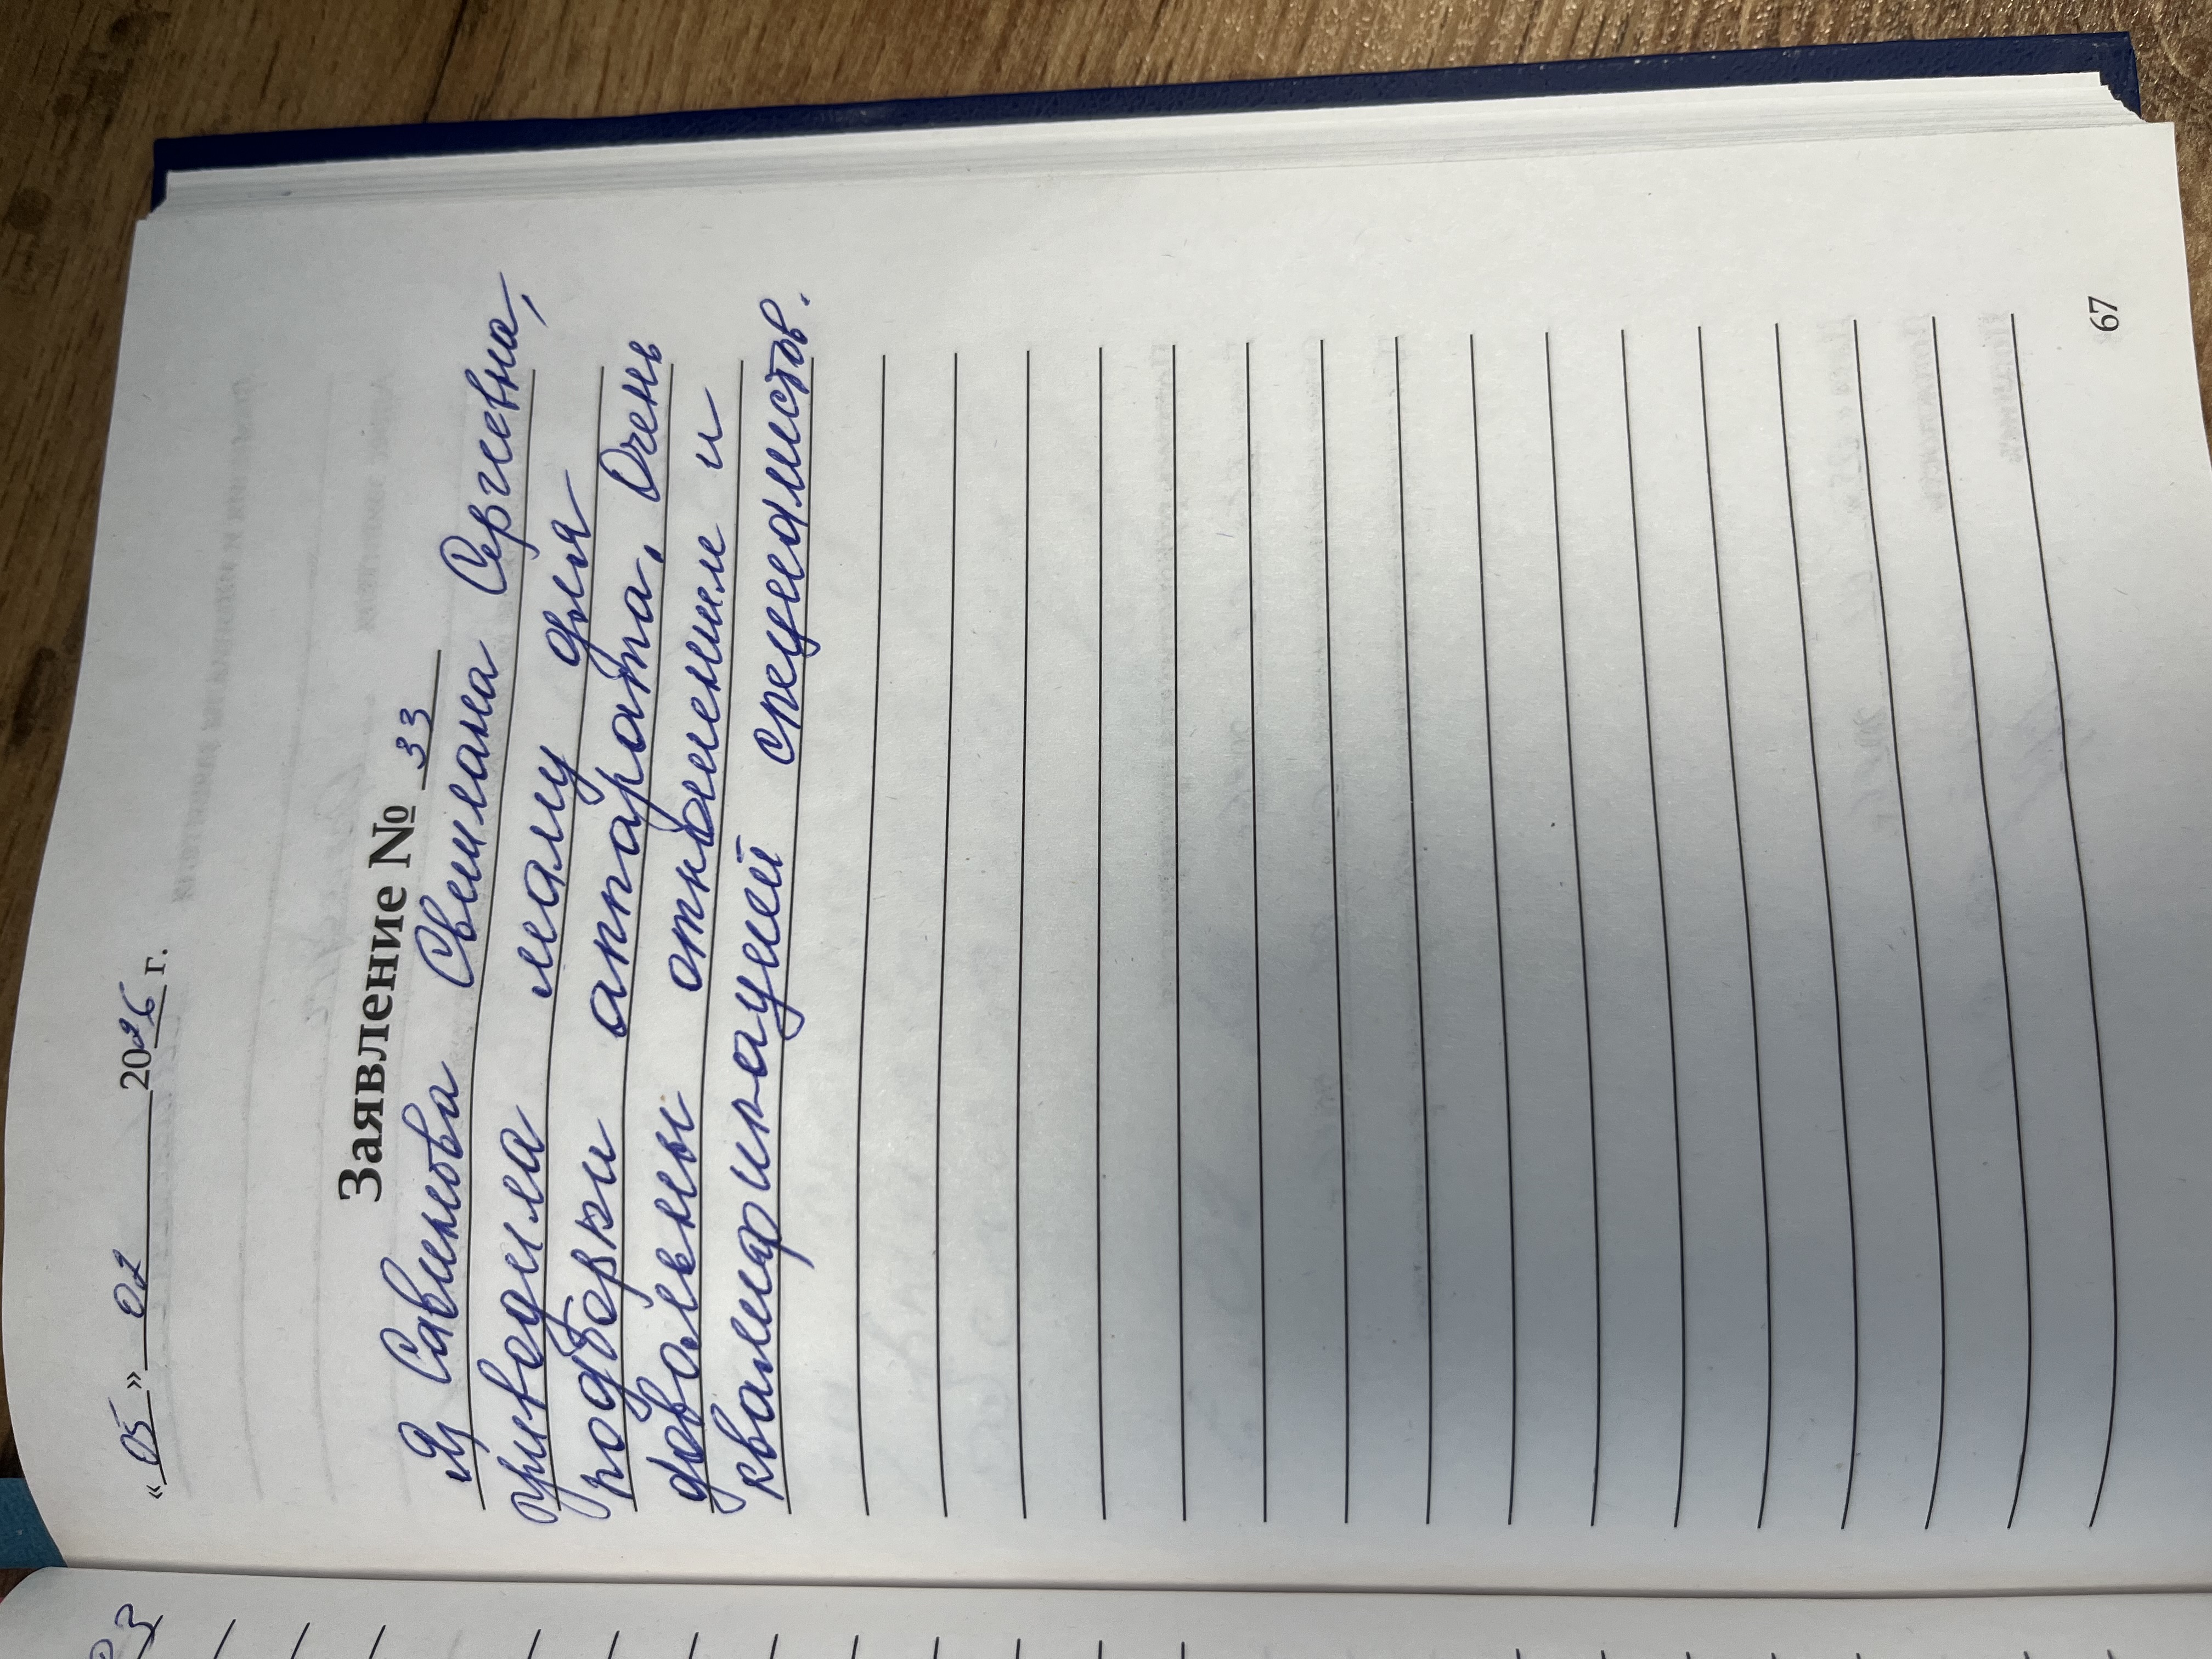 « 05 » 02 2026 г.
Заявление № 33
Я Савинова Светлана Сергеевна,
приводила маму для
подборки аппарата. Очень
довольны отношением и
квалификацией специалистов.
67